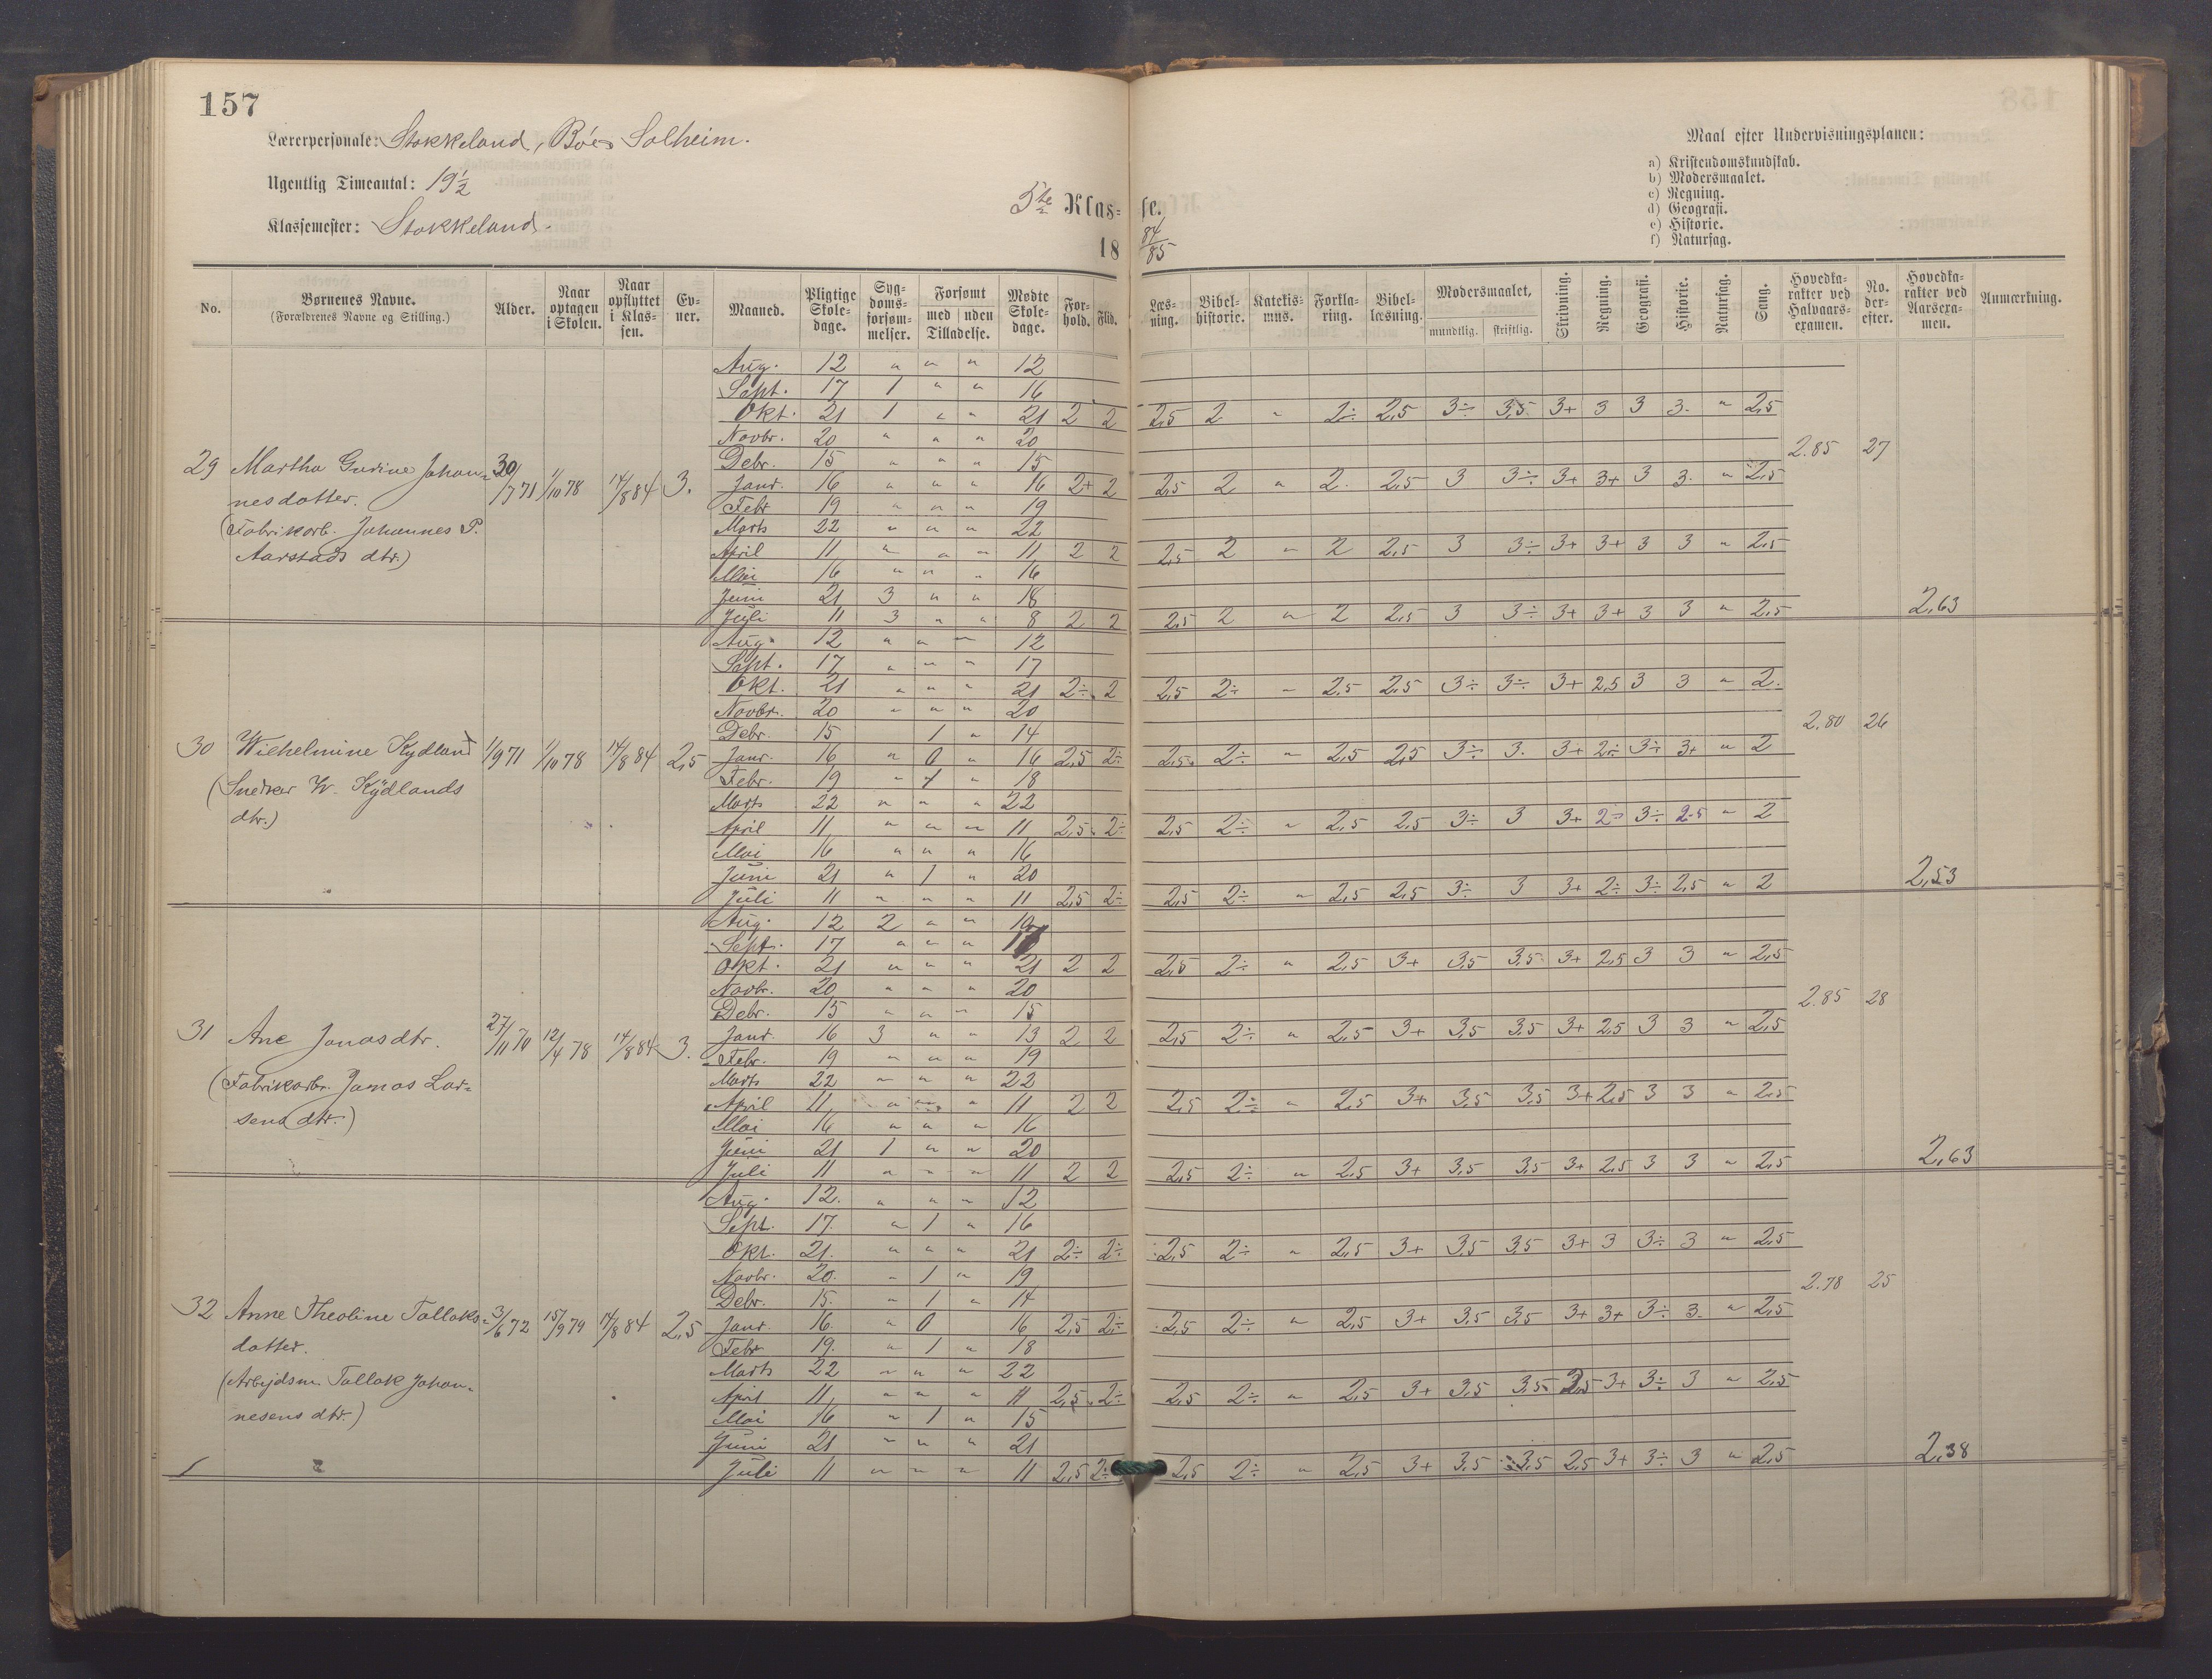 157
Lærerpersonale: Stokkeland, Bøe Solheim.
Ugentlig Timeantal: 19 1/2
Klassemester: Stokkeland.
5te Klasse.
18 84/85
Maal efter Undervisningsplanen:
a) Kristendomskundskab.
b) Modersmaalet.
c) Regning.
d) Geografi.
e) Historie.
f) Naturfag.
No. | Børnenes Navne. (Forældrenes Navne og Stilling.) | Alder. | Naar optagen i Skolen. | Naar opflyttet i Klassen. | Evner. | Maaned. | Pligtige Skoledage. | Sygdomsforsømmelser. | Forsømt med / uden Tilladelse. | Mødte Skoledage. | Forhold. | Flid. | Læsning. | Bibelhistorie. | Katekismus. | Forklaring. | Bibellæsning. | Modersmaalet, mundtlig. | skriftlig. | Skrivning. | Regning. | Geografi. | Historie. | Naturfag. | Sang. | Hovedkarakter ved Halvaarsexamen. | No. derefter. | Hovedkarakter ved Aarsexamen. | Anmærkning.
29 Martha Gurine Johannesdotter. (Fabrikarb. Johannes P. Aarstads dtr.) 30/7 71 1/10 78 14/8 84 3.
Aug. 12 " " " 12
Sept. 17 1 " " 16
Okt. 21 1 " " 21 2 2 2,5 2 " 2÷ 2,5 3÷ 3,5 3+ 3 3 3. " 2,5
Novbr. 20 " " " 20
Debr. 15 " " " 15 2.85 27
Janr. 16 " " " 16 2+ 2 2,5 2 " 2. 2,5 3 3÷ 3+ 3+ 3 3. " 2,5
Febr 19 " " " 19
Marts 22 " " " 22
April 11 " " " 11 2 2 2,5 2 " 2 2,5 3 3÷ 3+ 3+ 3 3 " 2,5
Mai 16 " " " 16
Juni 21 3 " " 18
Juli 11 3 " " 8 2 2 2,5 2 " 2 2,5 3 3÷ 3+ 3+ 3 3 " 2,5 2,63
30 Wilhelmine Kydland (Snedker W. Kydlands dtr.) 1/9 71 1/10 78 14/8 84 2,5
Aug. 12 " " " 12
Sept. 17 " " " 17
Okt. 21 " " " 21 2÷ 2 2,5 2÷ " 2,5 2,5 3÷ 3÷ 3+ 2,5 3 3 " 2.
Novbr. 20 " " " 20
Debr. 15 1 " 14 2.80 26
Janr. 16 " 0 " 16 2,5 2÷ 2,5 2÷ " 2,5 2,5 3÷ 3. 3+ 2÷ 3÷ 3+ " 2
Febr. 19 " 1 " 18
Marts 22 " " " 22
April 11 " " " 11 2,5 2÷ 2,5 2÷ " 2,5 2,5 3÷ 3 3+ 2÷ 3÷ 2.5 " 2
Mai 16 " " " 16
Juni 21 " 1 " 20
Juli 11 " " " 11 2,5 2÷ 2,5 2÷ " 2,5 2,5 3÷ 3 3+ 2÷ 3÷ 2,5 " 2 2,53
31 Ane Jonasdtr. (Fabrikarbr. Jonas Larsens dtr.) 27/11 70 12/4 78 14/8 84 3.
Aug. 12 2 " " 10
Sept. 17 " " " 17
Okt. 21 " " " 21 2 2 2,5 2÷ " 2,5 3+ 3,5 3,5 3+ 2,5 3 3 " 2,5
Novbr. 20 " " " 20
Debr. 15 " " " 15 2.85 28
Janr. 16 3 " " 13 2 2 2,5 2÷ " 2,5 3+ 3,5 3,5 3+ 2,5 3 3 " 2,5
Febr. 19 " " " 19
Marts 22 " " " 22
April 11 " " " 11 2 2 2,5 2÷ " 2,5 3+ 3,5 3,5 3+ 2,5 3 3 " 2,5
Mai 16 " " " 16
Juni 21 1 " " 20
Juli 11 " " " 11 2 2 2,5 2÷ " 2,5 3+ 3,5 3,5 3+ 2,5 3 3 " 2,5 2,63
32 Anne Theoline Tollaksdotter. (Arbejdsm. Tollak Johannesens dtr.) 3/6 72 15/9 79 14/8 84 2,5
Aug. 12. " " " 12
Sept. 17. " 1 " 16
Okt. 21. " " " 21 2÷ 2÷ 2,5 2÷ " 2,5 3+ 3,5 3,5 3+ 3 3÷ 3 " 2,5
Novbr. 20. " 1 " 19
Debr. 15. " 1 " 14 2.78 25
Janr. 16. " 0 16 2,5 2÷ 2,5 2÷ " 2,5 3+ 3,5 3,5 3+ 3+ 3÷ 3. " 2,5
Febr 19. " 1 " 18
Marts 22 " " " 22
April 11 " " " 11 2,5 2÷ 2,5 2÷ " 2,5 3+ 3,5 3,5 2,5 3+ 3÷ 3 " 2,5
Mai 16 " 1 " 15
Juni 21 " " " 21
Juli 11 " " " 11 2,5 2÷ 2,5 2÷ " 2,5 3+ 3,5 3,5 2,5 3+ 3÷ 3 " 2,5 2,38